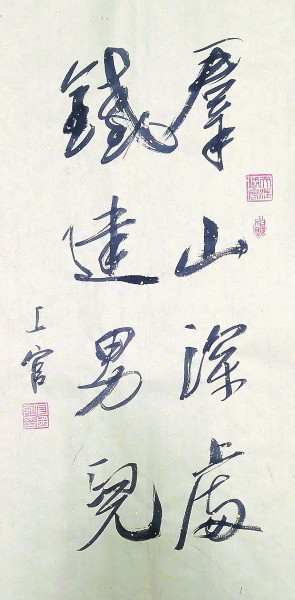 羣山深處
鐵建男兒
上官